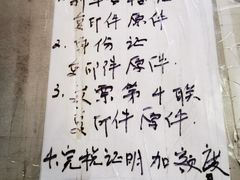 复印件原件
2.身份证
复印件原件.
3.发票第4联
复印件原件.
4.完税证明加额度